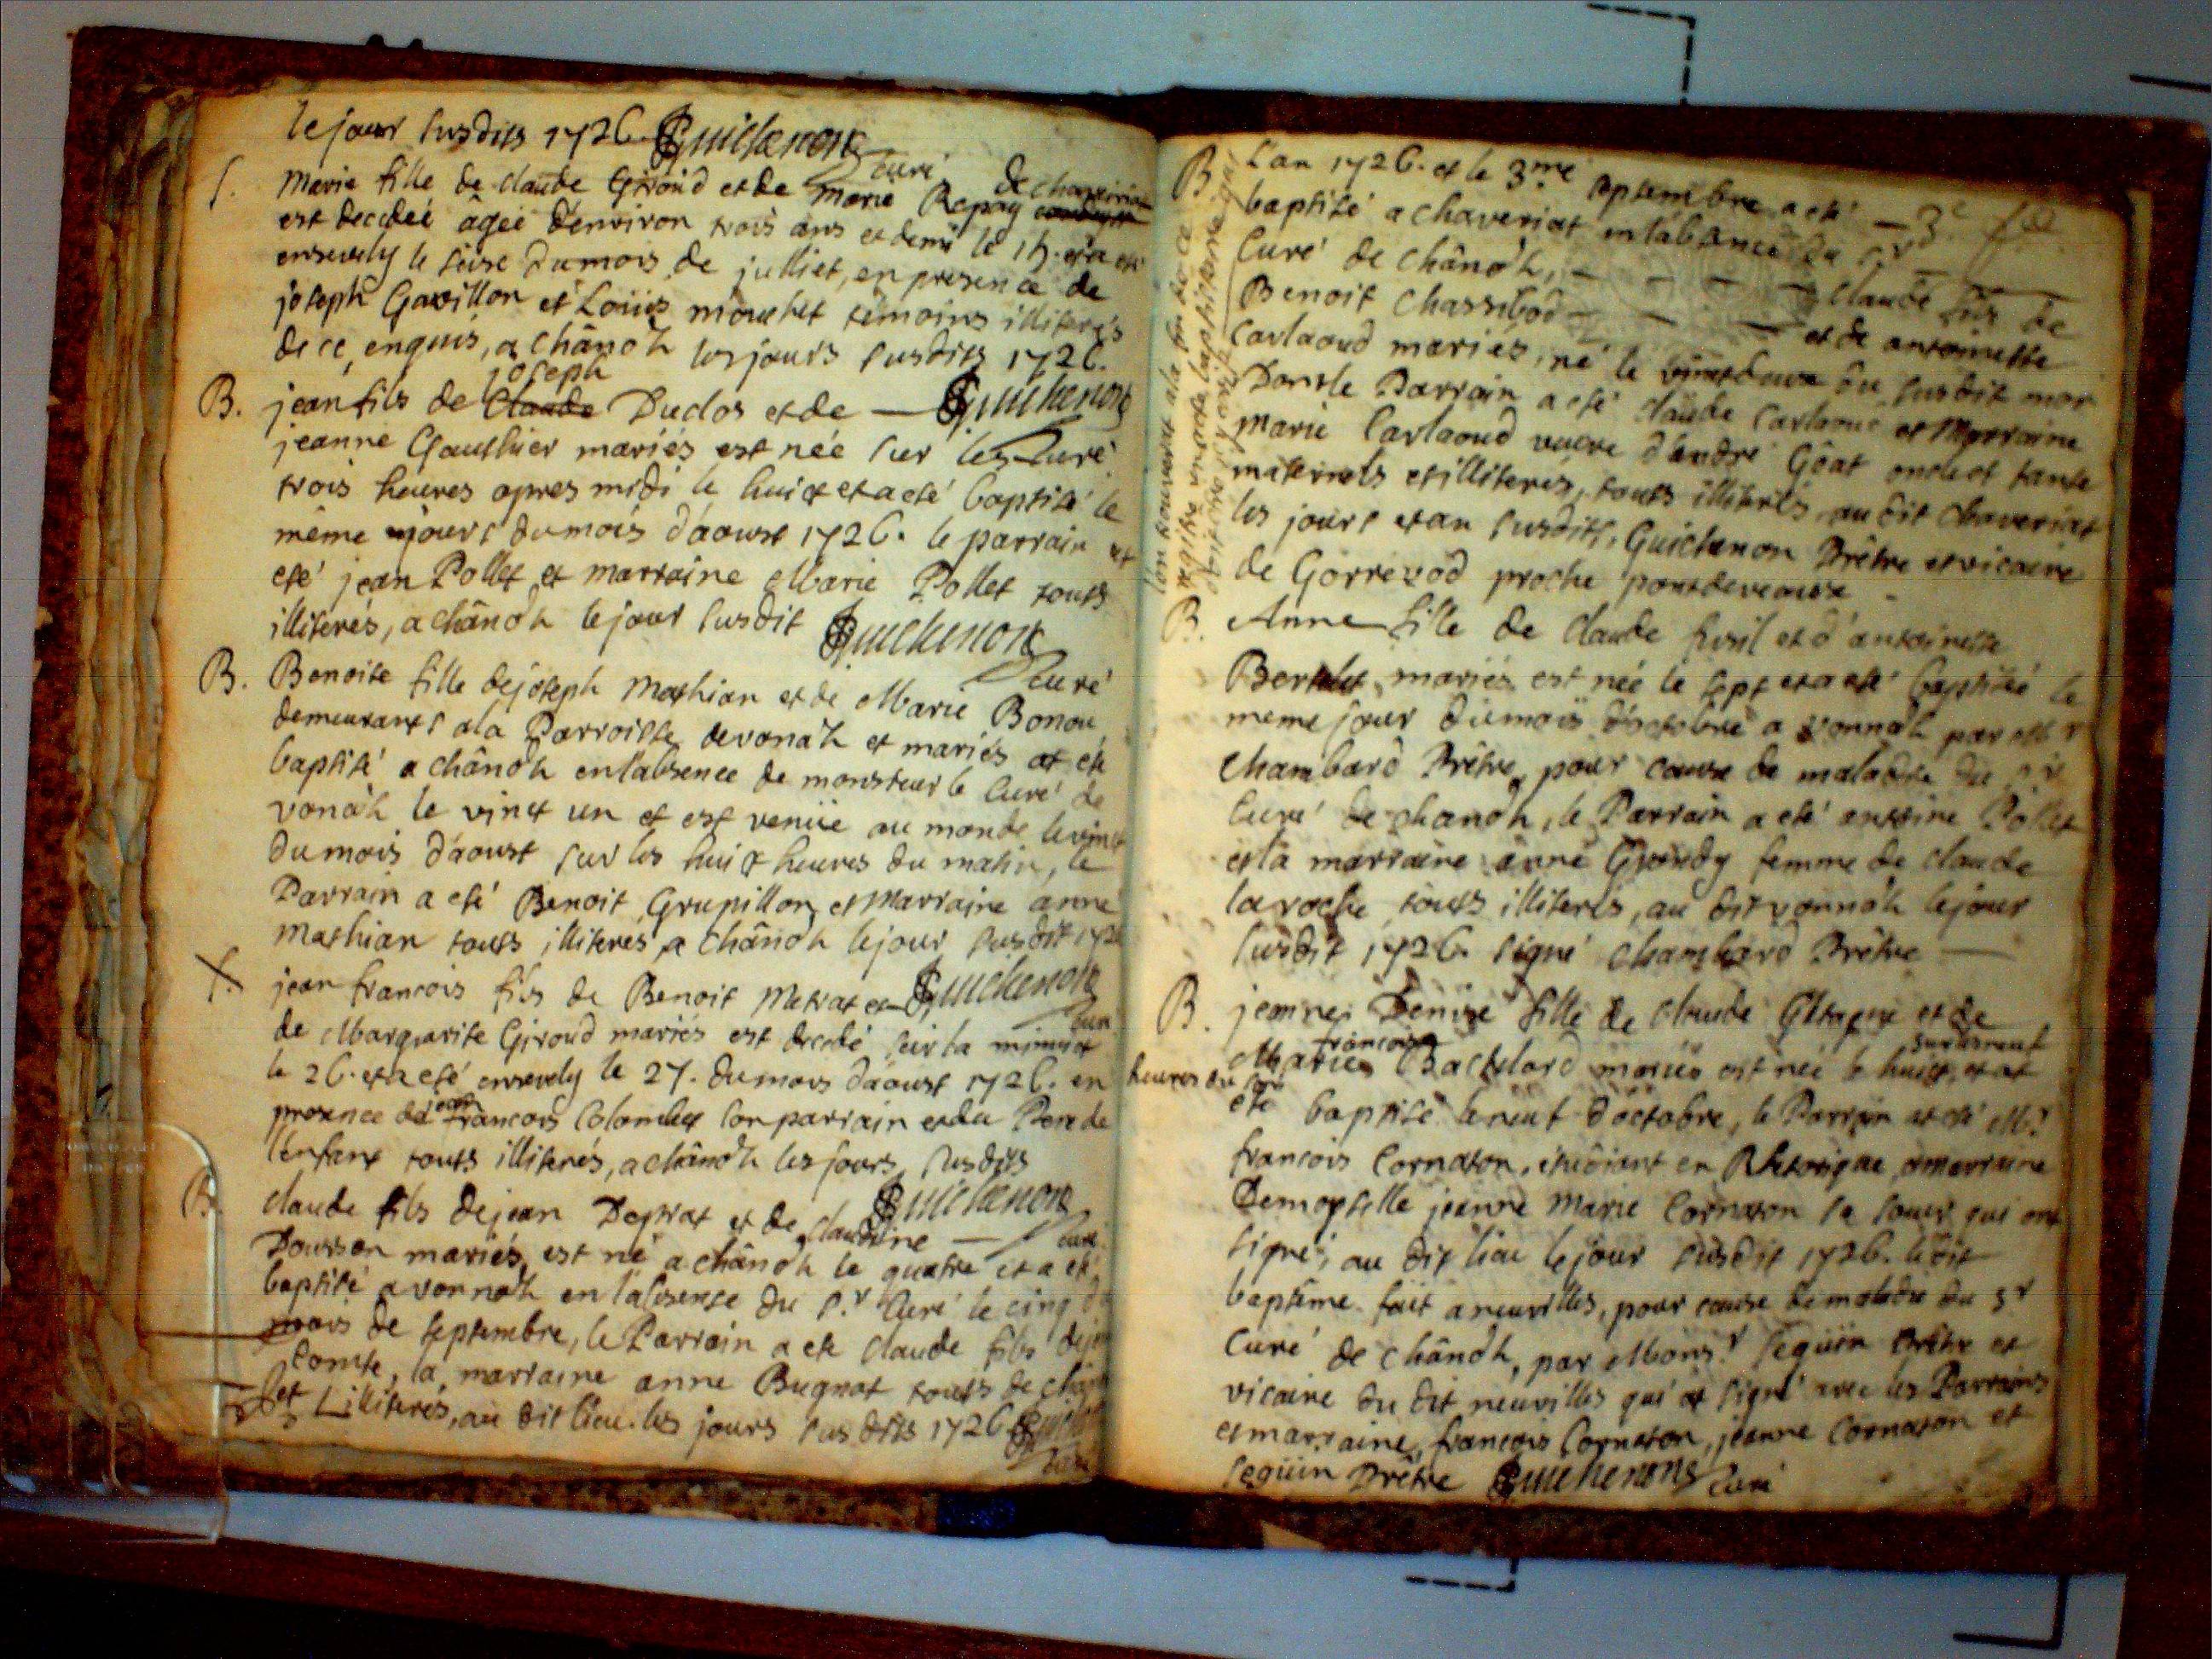 le jour susdits 1726. Guichenon
curé
S. Marie fille de claude Giroud et de Marie Repay
est decedeé âgeé denviron trois ans et demi le 15. et a eté
ensevely le seise du mois de julliet, en presence de
joseph Gavillon et Loüis mouchet témoins illiterés
de ce, enquis, a chânoz les jours susdits 1726.
joseph
B. jean fils de claude Duclos et de — Guichenon
jeanne Gauthier mariés est née sur les curé
trois heures apres midi le huict et a eté baptisé le
même jours du mois d'aoust 1726. le parrain at
eté jean Pollet et marraine Marie Pollet touts
illiterés, a chânoz le jour susdit Guichenon
curé
B. Benoite fille de joseph Mathian et de Marie Bonon
demeurants a la Parroisse de vonaz et mariés at eté
baptisé a chânoz en l'absence de monsieur le Curé de
vonaz le vinct un et est venüe au monde le vinct
du mois d'aoust sur les huict heures du matin, le
Parrain a eté Benoit Grupillon et Marraine anne
Mathian touts illiteres a chânoz le jour susdit 1726
S. jean francois fils de Benoit Metrat et Guichenon
curé
de Marguerite Giroud mariés est decedé sur la minuict
le 26. et a eté ensevely le 27. du mois d'aoust 1726. en
jean
presence de francois Colombet son parrain et du Pere de
l'enfant touts illiterés, a chânoz les jours susdits
Guichenon
B. claude fils de jean Deprat et de claudine — curé
Dourson mariés, est né a chânoz le quatre et a eté
baptisé a vonnaz en l'absense du S.r Curé le cinq du
mois de septembre, le Parrain a eté claude fils de jean
Comte, la marraine anne Bugnat touts de chânoz
et illiterés, au dit lieu les jours susdits 1726 Guichenon
curé
lon trouverat a la fin de ce
registre un acte baptistere qui
B L'an 1726. et le 3.me septembre a eté — 3.e
baptisé a chaveriat en l'absence du S.r
Curé de chânoz, — — — claude fils de
Benoit Chassibod — — — et de antoinette
Carlaoud mariés, né le du susdit mois
Dont le Parrain a eté claude Carlaoud et Marraine
Marie Carlaoud veuve d'andré Gôat oncle et tante
maternels et illiterés, touts illiterés au dit chaveriat
les jours et an susdits, Guichenon Prêtre et vicaire
de Gorrevod proche pontdevaux
B. Anne fille de claude et d'antoinette
Berthelet mariés est née le sept et a eté baptisé le
meme jour du mois d'octobre a vonnaz par M.r
Chambard Prêtre, pour cause de maladie du S.r
Curé de chanoz, le Parrain a eté antoine Pollet
et la marraine anne Grondy femme de claude
laroche touts illiterés, au dit vonnaz le jour
susdit 1726. signé chambard Prêtre —
B. jeanne Denise fille de claude et de
francoise
Marie Bachelard mariés est née le huict, et at
heures du soir
eté baptisé le neuf d'octobre, le Parrain at eté M.r
francois Cornaton, étudiant en Rhetorique, marraine
Demoyselle jeanne Marie Cornaton sa soeur qui ont
signé, au dit lieu le jour susdit 1726. le dit
baptême fait a neuvilles, pour cause de maladie du S.r
Curé de chânoz, par Mons.r Seguin Prêtre et
vicaire du dit neuvilles qui at signé avec les Parrains
et marraine, francois Cornaton, jeanne Cornaton et
seguin Prêtre Guichenon curé